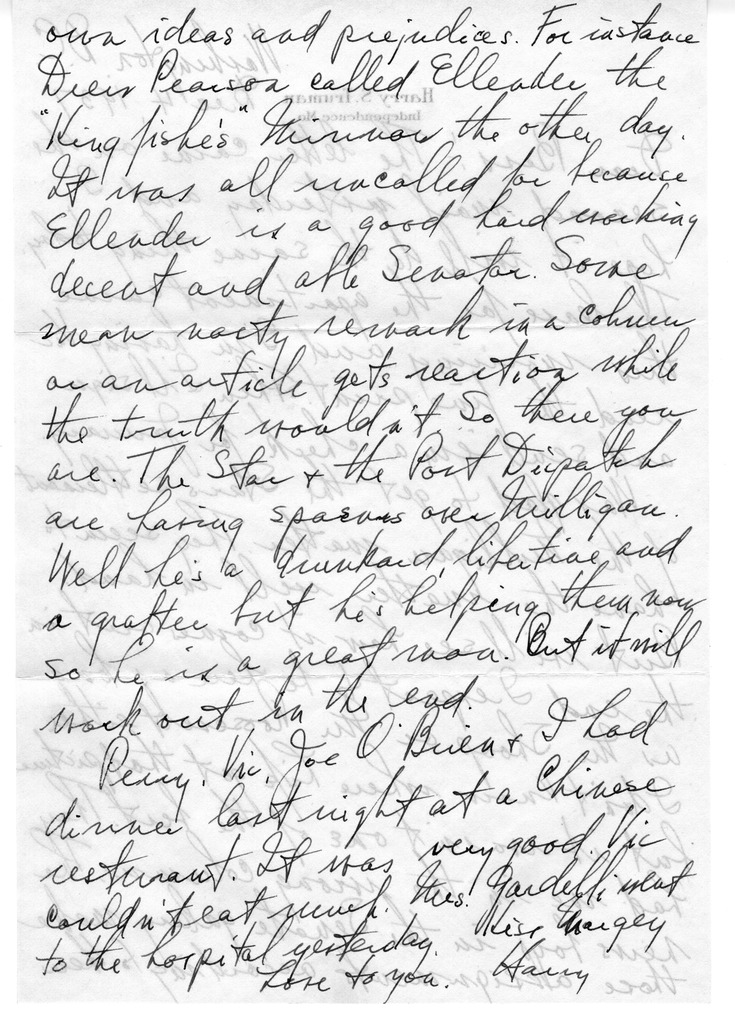 own ideas and prejudices. For instance
Drew Pearson called Ellender the
"King fishe's" Minnow the other day.
It was all uncalled for because
Ellender is a good hard working
decent and able Senator. Some
mean nasty remark in a column
or an article gets reaction while
the truth wouldn't. So there you
are. The Star & the Post Dispatch
are having spasms over Milligan.
Well he's a drunkard, libertine and
a grafter but he's helping them now
so he is a great man. But it will
work out in the end.
Perry, Vic, Joe O'Brien & I had
dinner last night at a Chinese
resturant. It was very good. Vic
couldn't eat much. Mrs. Gardelli went
to the hospital yesterday. Kiss Margey
Love to you. Harry
Harry S. Truman
Independence, Mo.